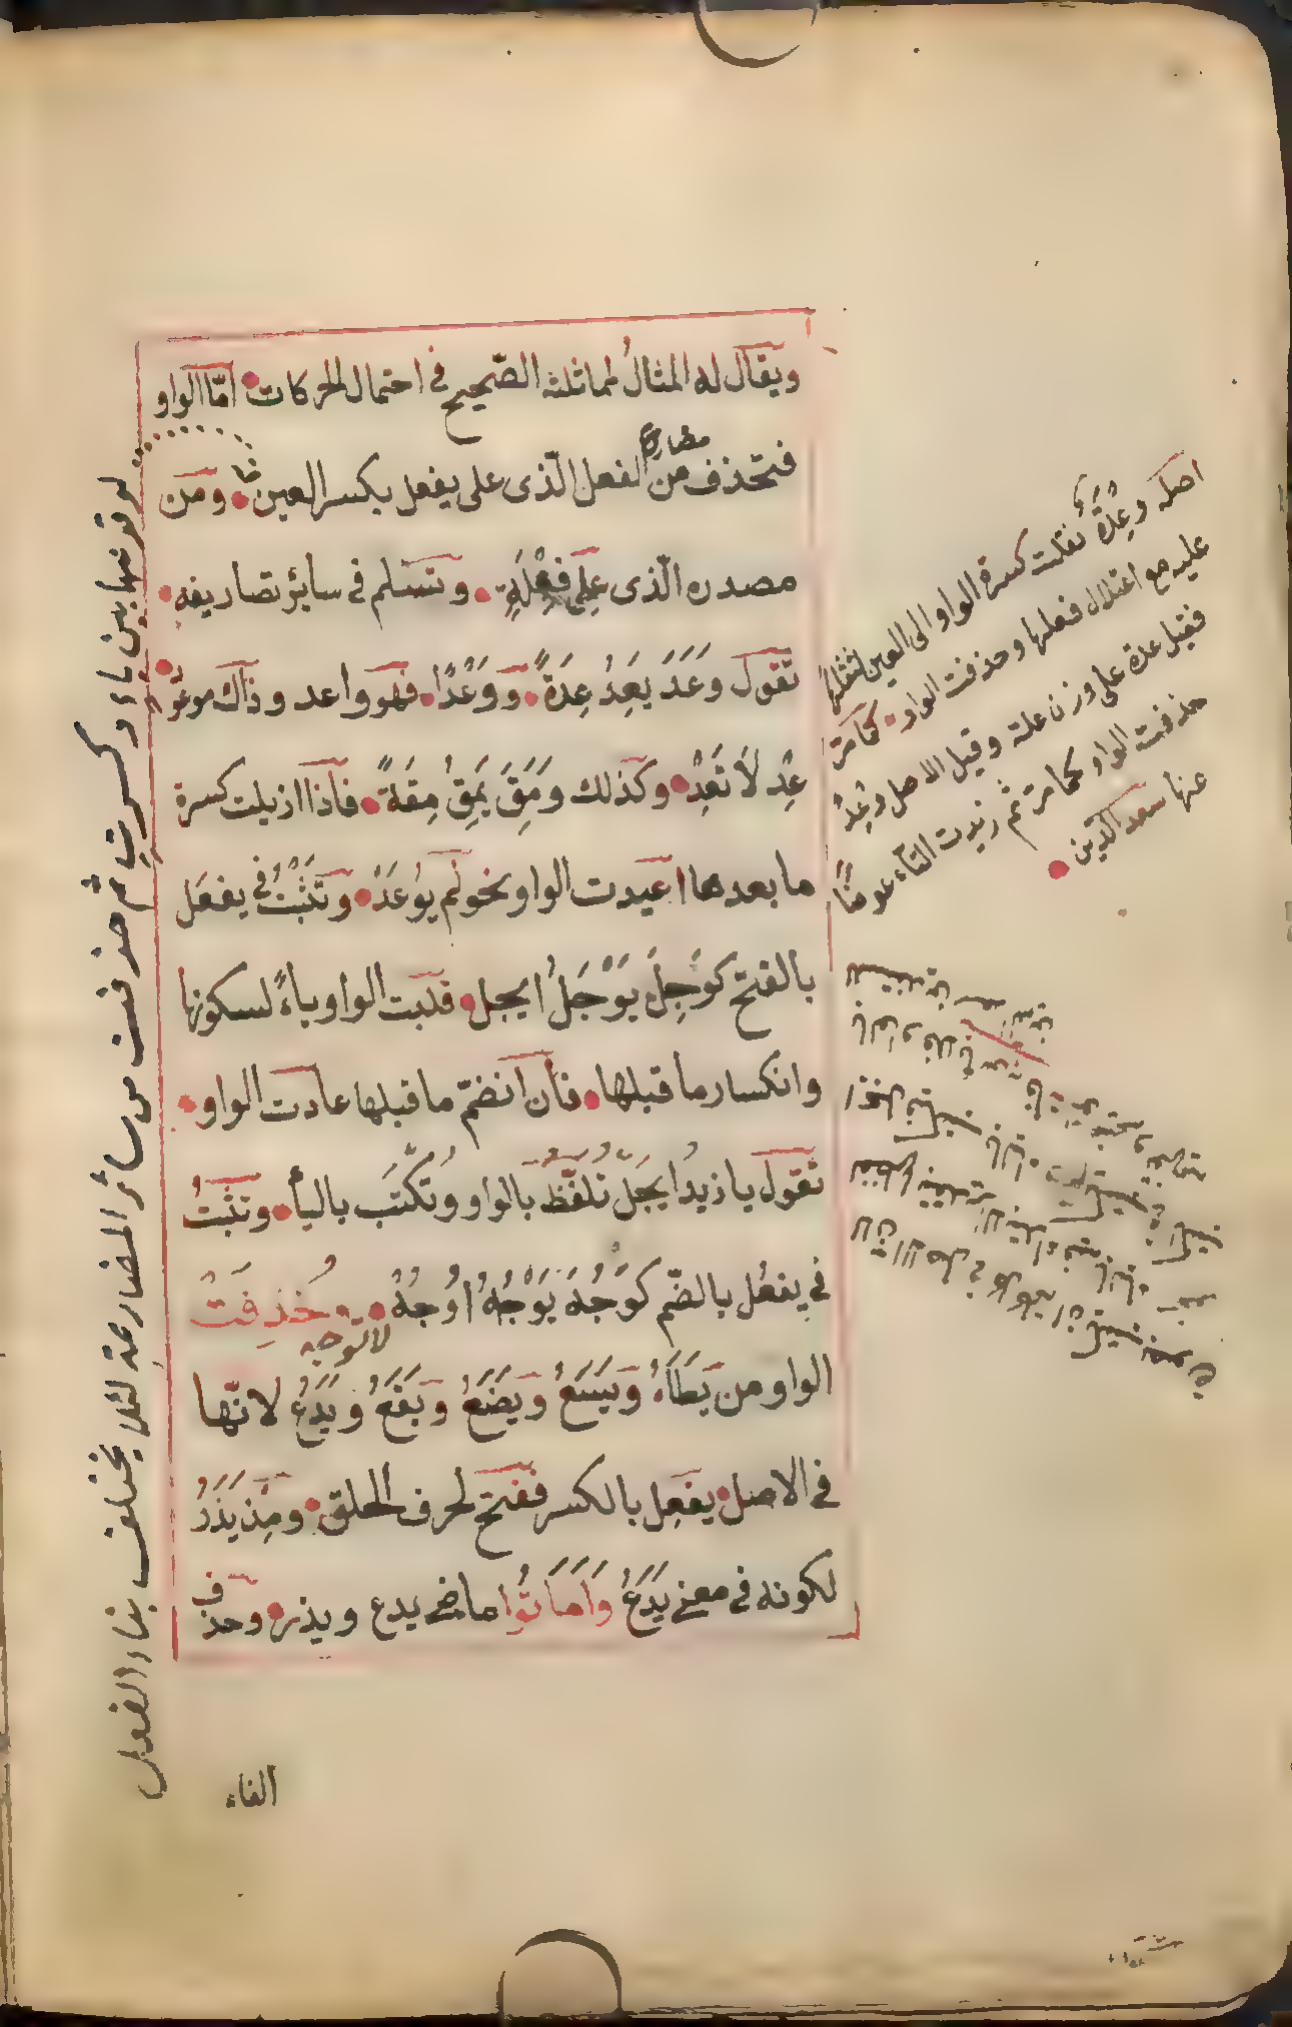 ويقال له المثالُ لمماثلته الصّحيح في احتمال الحركات امّا الواو
فتحذف من الفعل الّذى على يفعل بكسر العين ومن
مضارع
مصدره الّذى على فِعْلَةٍ وتسلم في سائر تصاريفه
تقول وَعَدَ يَعِدُ عِدَةً وَوَعْدًا فهو واعد وذاك موعودٌ
عِدْ لَا تَعِدْ وكذلك وَمِقَ يَمِقُ مِقَةً فاذا ازيلت كسرة
ما بعدها اعيدت الواو نحو لم يُوعَدْ وتَثْبُتُ في يفعَل
بالفتح كوَجِلَ يَوْجَلُ ايجل قلبت الواو ياءً لسكونها
وانكسار ما قبلها فأن انضمّ ما قبلها عادت الواو
تقول يا زيدُ ايجَل تُلفَظُ بالواو وتُكتَب بالياء وتثبتُ
في يفعُل بالضّم كوَجُهَ يَوْجُهُ اُوجُهْ وحُذِفَتْ
لا توجه
الواو من يَطَاءُ ويَسَعُ ويَضَعُ ويَقَعُ ويَدَعُ لانّها
في الاصل يفعِل بالكسر ففتح لحرف الحلق ومِن يَذَرُ
لكونه في معنى يَدَعُ وَاَمَاتُوا ماضى يدع ويذر وحذف
الفاء
اصله وِعْدَةٌ نقلت كسرة الواو الى العين لثقلها
عليه مع اعتلال فعلها وحذفت الواو كما مرّ
فقيل عدة على وزن علة وقيل الاصل وِعْدٌ
حذفت الواو كما مرّ ثم زيدت التاء عوضًا
عنها سعد الدّين
لوقوعها بين ياء وكسرة ثم حذفت من سائر المضارعة لئلا يختلف بناء الفعل